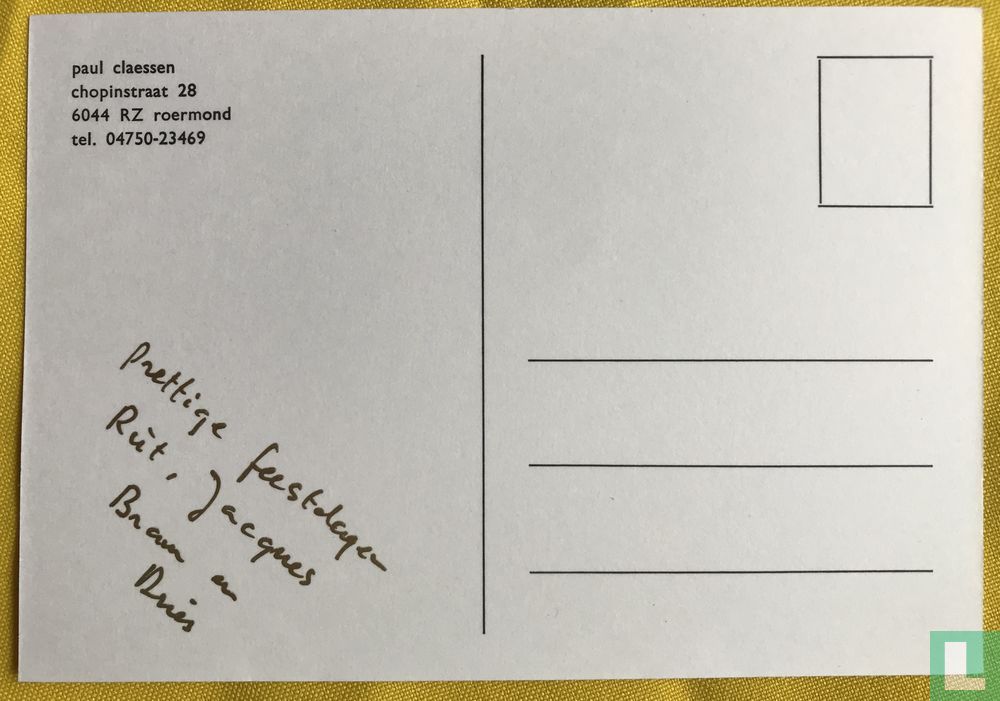 paul claessen
chopinstraat 28
6044 RZ roermond
tel. 04750-23469
Prettige feestdagen
Rùt, Jacques
Bram en
Dries
L